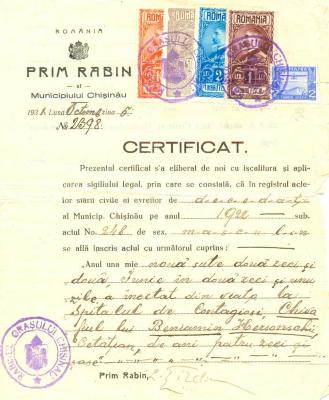 ROMÂNIA
PRIM RABIN
al
Municipiului Chișinău
193 Luna Octomv ziua 5
No 2598
CERTIFICAT.
Prezentul certificat s'a eliberat de noi cu iscalitura și aplicarea sigiliului legal, prin care se constată, că în registrul actelor
stării civile ai evreilor de decedați
al Municip. Chișinău pe anul 1922 sub.
actul No 248 de sex. masculin
se află înscris actul cu următorul cuprins:
„Anul una mie nouă sute două zeci și
două, Iunie în două zeci și unu
zile a încetat din viață la
Spitalul de Contagioși, Chiva
fiul lui Beniamin Hersonschi,
Cetățian, de ani patru zeci și
șase"
Prim Rabin,
RABINUL ORAȘULUI CHIȘINĂU
ROMANIA